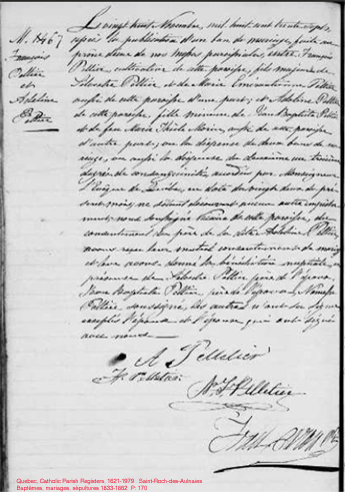 M. 1467
François
Pelltier
et
Adeline
Pelltier
Le vingt huit Novembre, mil huit cent trente sept,
après la publication d'un ban de mariage, faite au
prône de nos messes paroissiales, entre François
Pelltier, cultivateur de cette paroisse, fils majeur de
Silvestre Pelltier, et de Marie Pelltier
aussi de cette paroisse d'une part; et Adeline Pelltier
de cette paroisse, fille mineure de Jean Baptiste Pelltier
et de feu Marie Morin, aussi de cette paroisse
d'autre part; vu la dispense de deux bans de ma
riage, vu aussi la dispense du deuxième au troisième
degré de consanguinité accordée par Monseigneur
Evêque de Québec, en date du vingt deux du pré
sent mois, ne s'étant découvert aucun autre empêche
ment, nous soussigné Prêtre de cette paroisse, du
consentement du père de la dite Adeline Pelltier,
avons reçu leur mutuel consentement de mariage
et leur avons donné la bénédiction nuptiale
présence de Silvestre Pelltier père de l'époux,
Jean Baptiste Pelltier, père de l'épouse,
Pelltier, soussigné, les autres n'ont su signer
excepté l'époux et l'épouse qui ont signé
avec nous
A Pelletier
F. Pelletier
N. F. Pelletier
Ptre
Quebec, Catholic Parish Registers, 1621-1979 Saint-Roch-des-Aulnaies
Baptêmes, mariages, sépultures 1833-1862 P. 170